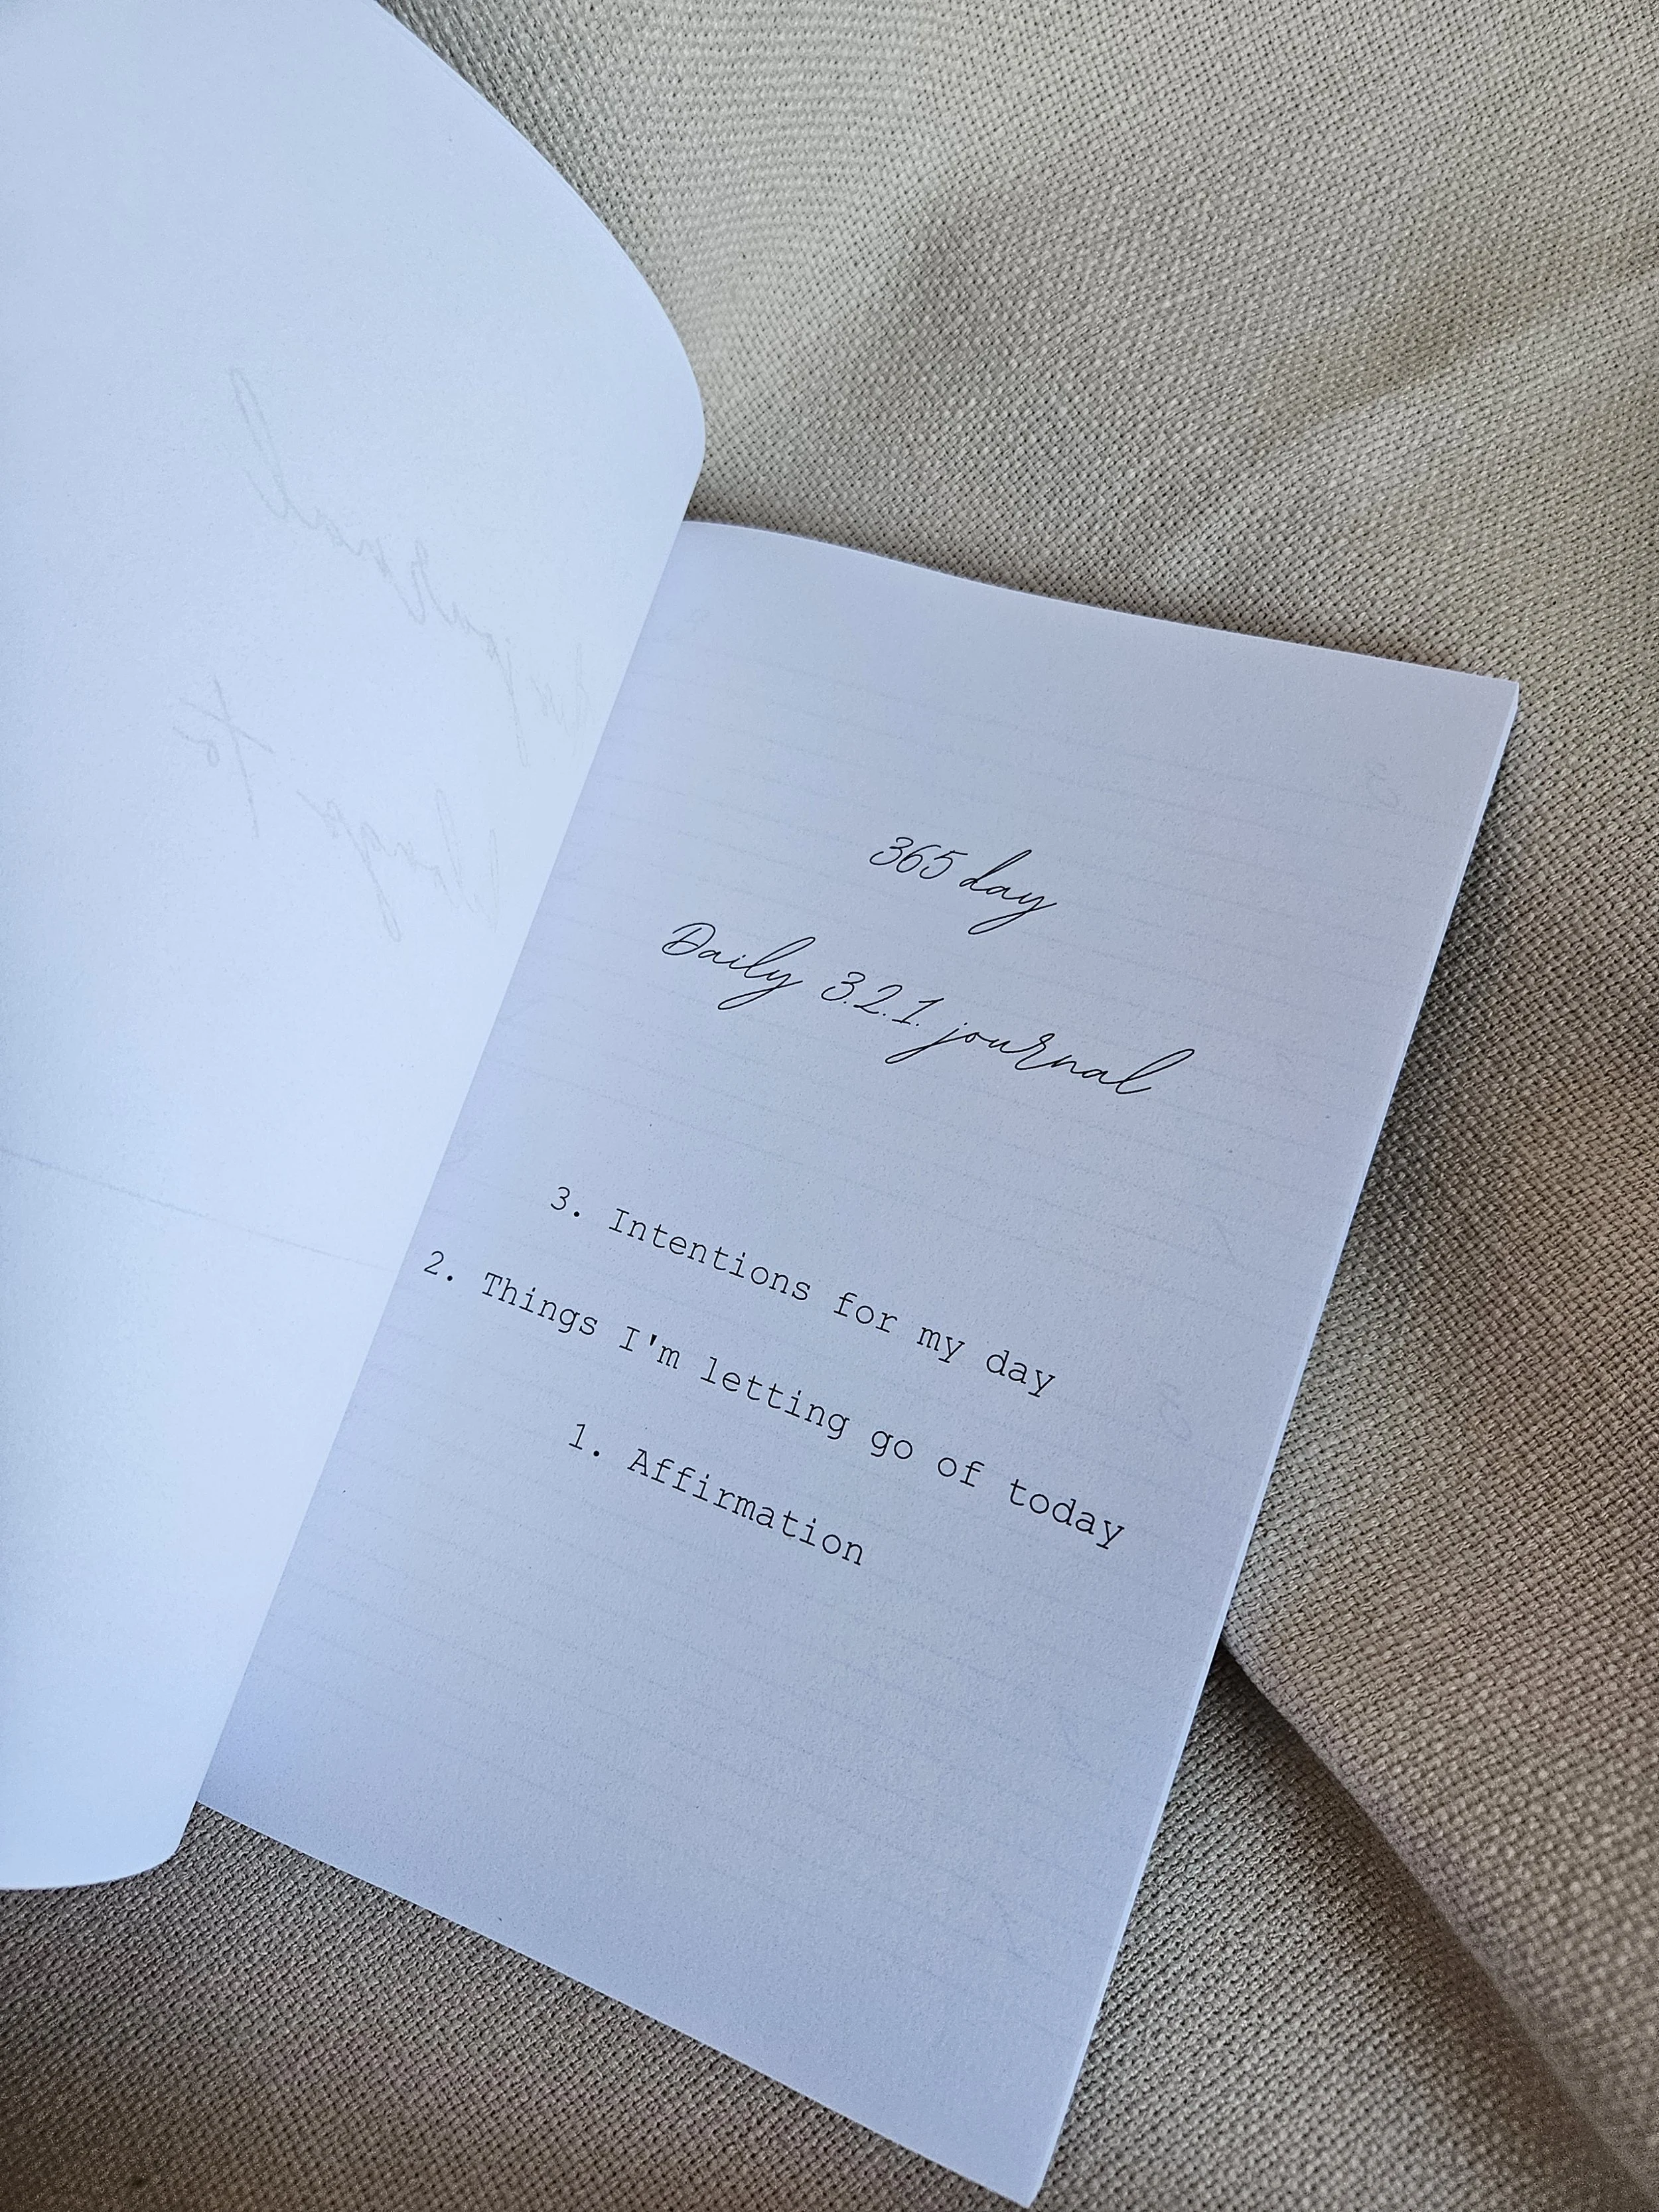 This journal
belongs to
365 day
Daily 3.2.1. journal
3. Intentions for my day
2. Things I'm letting go of today
1. Affirmation